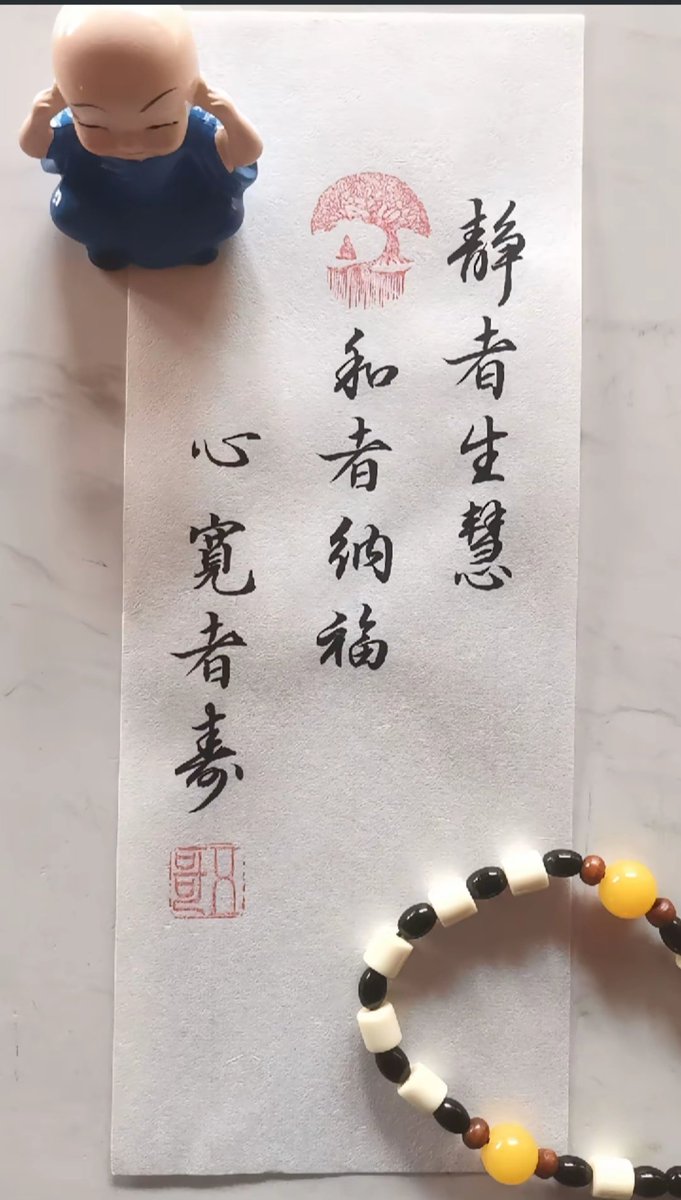 静者生慧
和者纳福
心宽者寿